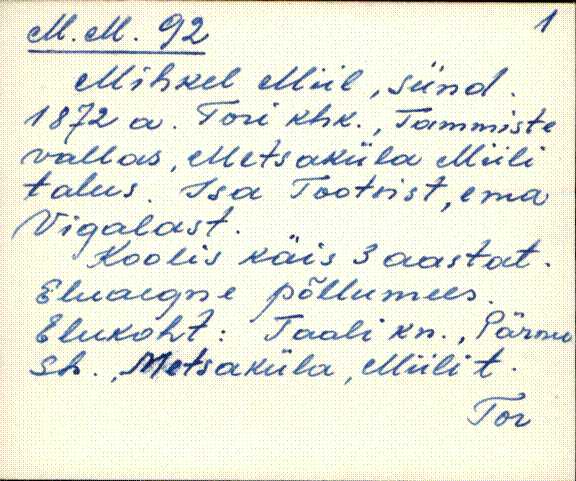 M.M. 92
1
Mihkel Miil, sünd.
1872 a. Tori khk., Tammiste
vallas, Metsaküla Miili
talus. Isa Tootsist, ema
Vigalast.
Koolis käis 3 aastat.
Eluaegne põllumees.
Elukoht: Taali kn., Pärnu
Sh., Metsaküla, Miili t.
Tor